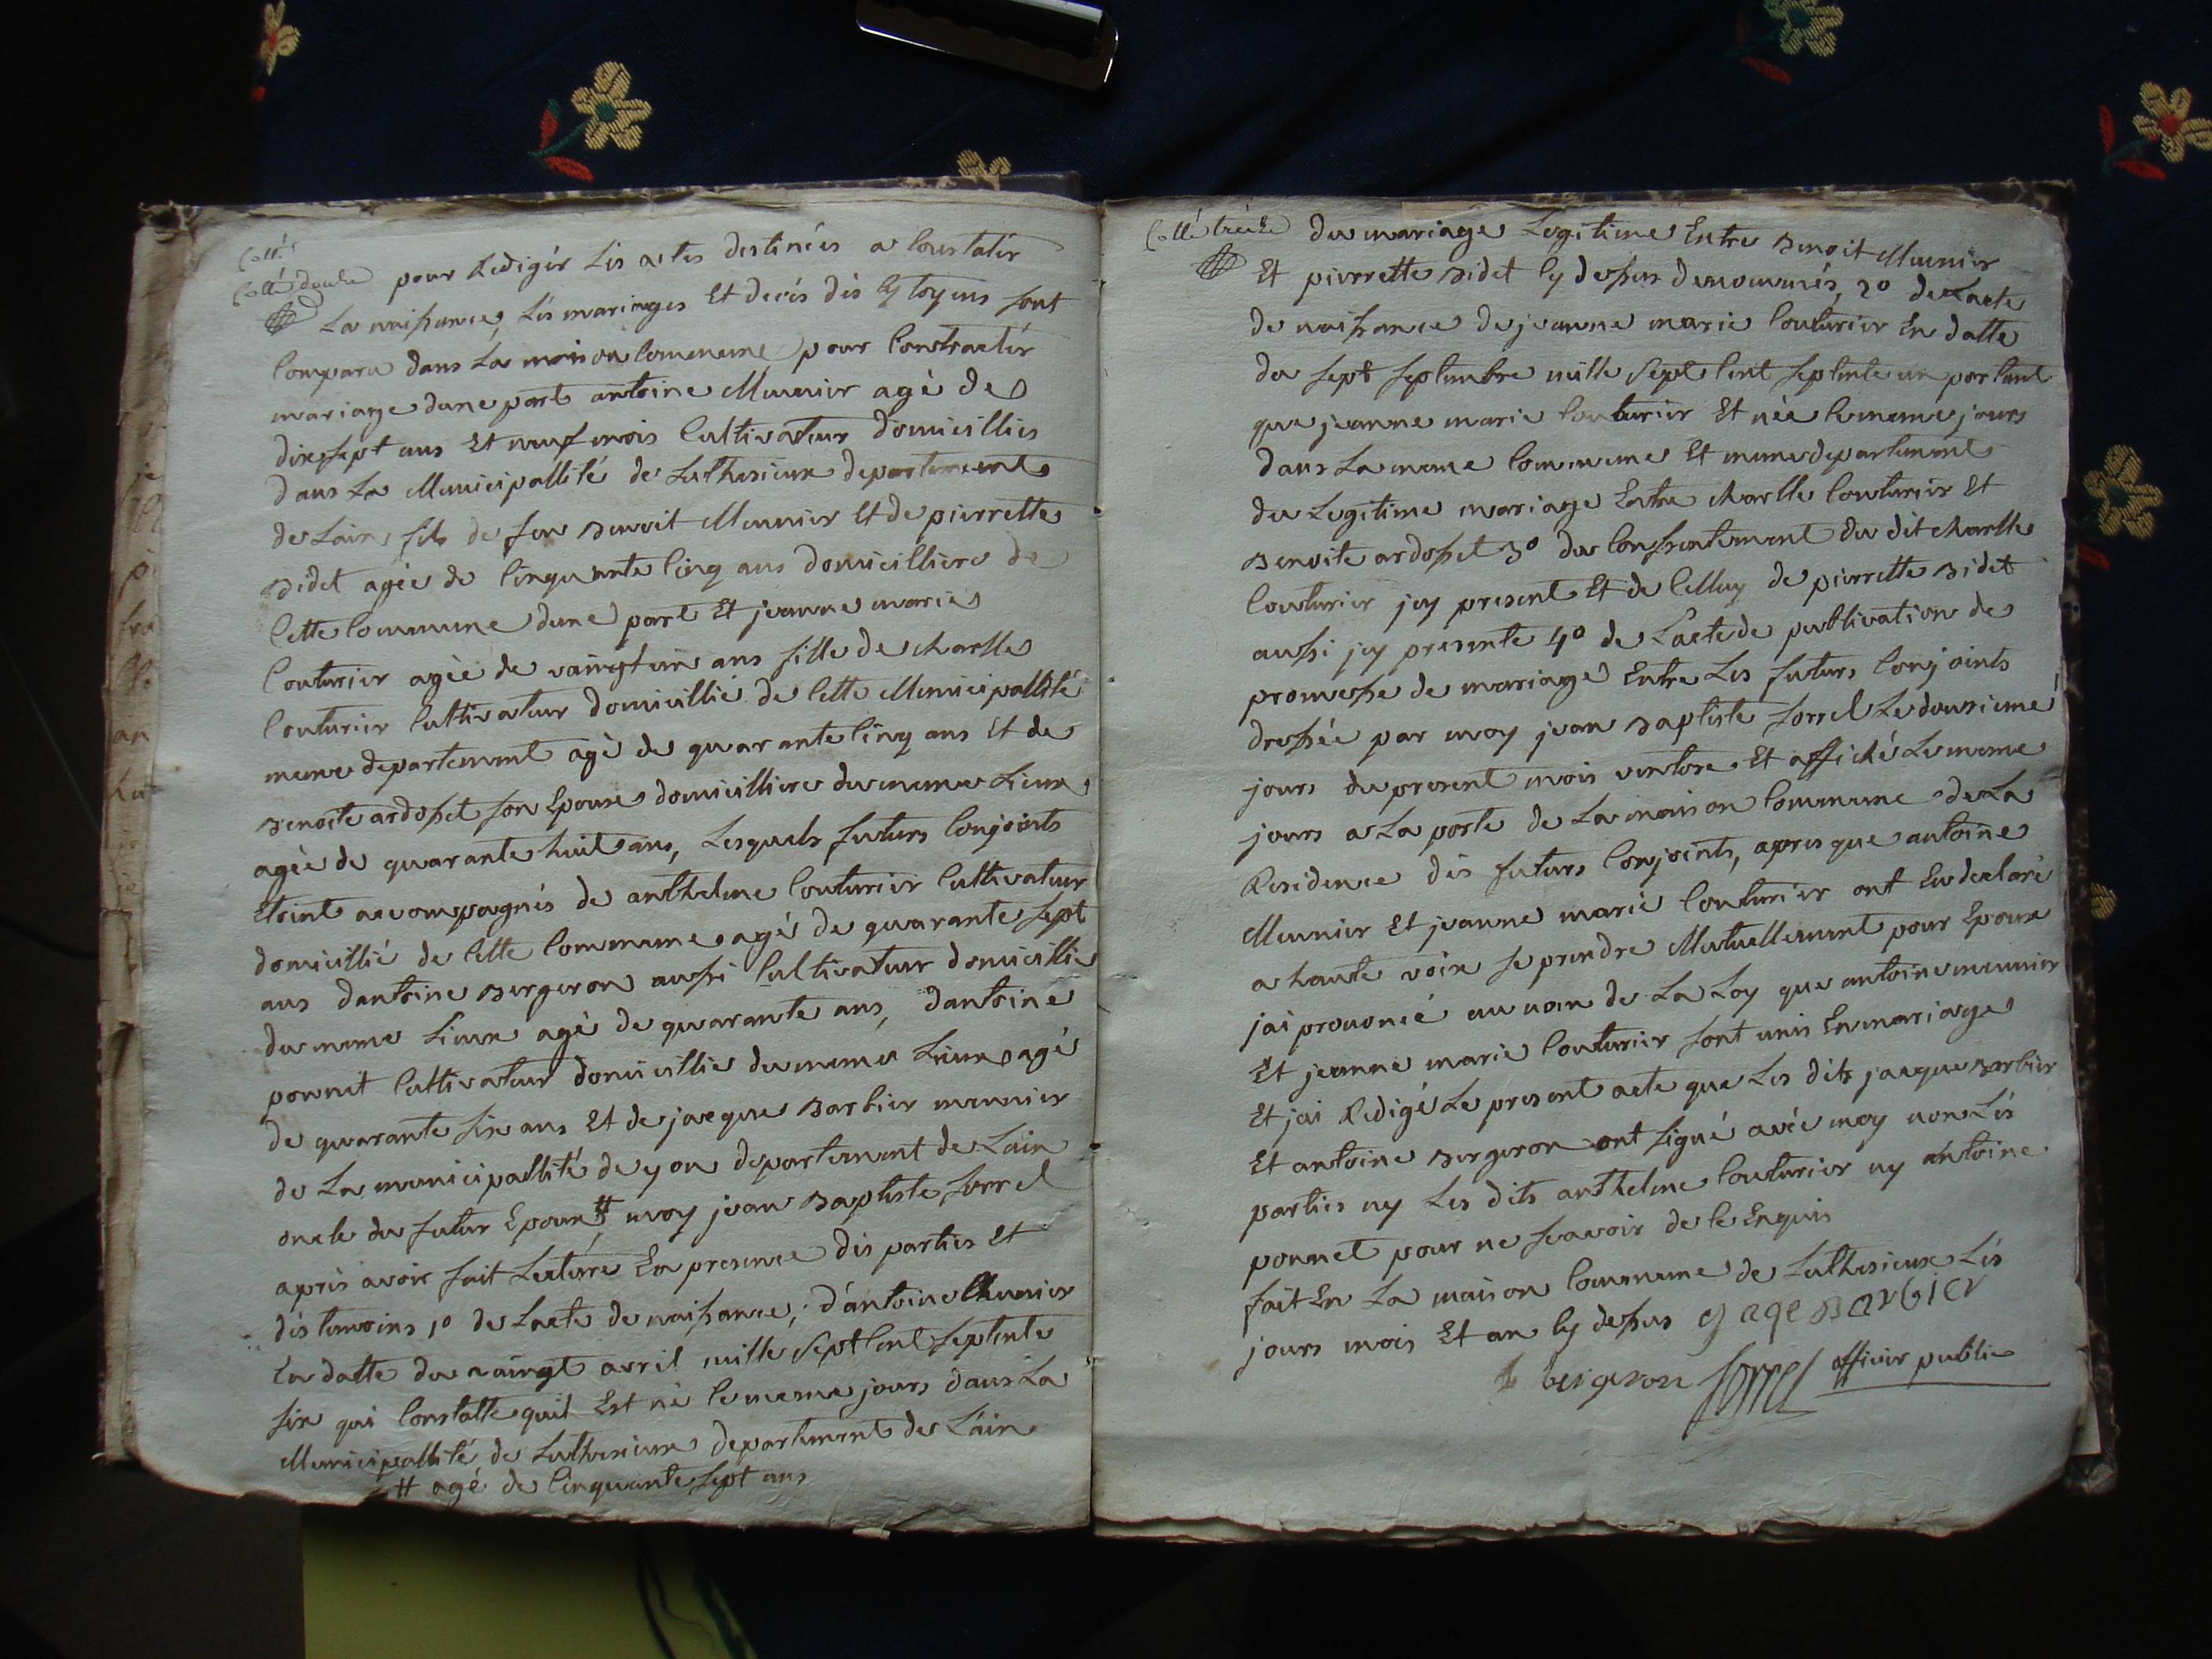 Cotté
Cotté douze pour Redigér Lés actes destinées a Constatér
La naissance, Lés mariages Et decés dés Cytoyens sont
Comparu dans La maison Commune pour Contractér
mariage dune part antoine Meunier agé de
dixsept ans Et neuf mois Cultivateur domicilliés
dans La Municipallité de Luthesieux departement
de Lain, fils de feu Benoit Meunier Et de pierrette
Bidet agée de Cinquante Cinq ans domicilliere de
Cette Commune dune part Et jeanne marie
Couturier agée de vaingt un ans fille de charlle
Couturier Cultivateur domicillié de Cette Municipallité
meme departement agé de quarante Cinq ans Et de
Benoite ardosset son Epouse domicilliere du meme Lieux,
agée de quarante huit ans, Lesquels futurs Conjoints
Etoint accompagnés de anthelme Couturier Cultivateur
domicillié de Cette Commune agé de quarante sept
ans dantoine Bergeron aussi Cultivateur domicillié
du meme Lieux agé de quarante ans, dantoine
ponnet Cultivateur domicillié du meme Lieux agé
de quarante six ans Et de jacque Barbier meunier
de La municipallité de yon departement de Lain
oncle du futur Epoux, # moy jean Baptiste forrel
aprés avoir fait Lecture En presence dés parties Et
dés temoins, 1º de Lacte de naissance, d'antoine Meunier
En datte du vaingt avril mille sept Cent septente
six qui Constatte quil Est né le meme jours dans La
Municipallité de Luthesieux departement de L'ain
# agé de Cinquante sept ans
Cotté treize du mariage Legitime Entre Benoit Meunier
Et pierrette Bidet Cy dessus denommés, 2º de Lacte
de naissance de jeanne marie Couturier En datte
du sept septembre mille sept Cent septente un portant
que jeanne marie Couturier Et née le meme jours
dans La meme Commune Et meme departement
du Legitime mariage Entre charlle Couturier Et
Benoite ardosset 3º du Consentement du dit charlle
Couturier jcy present Et de Celluy de pierrette Bidet
aussi jcy presente 4º de L'acte de publication de
promesse de mariage Entre Les futurs Conjoints
dressée par moy jean Baptiste forrel Le dousieme
jours du present mois ventose Et affiché Le meme
jours a La porte de La maison Commune de La
Residence dés futurs Conjoints, apres que antoine
Meunier Et jeanne marie Couturier ont Eu declaré
a haute voix se prendre Mutuellement pour Epoux
jai prononcé au nom de La Loy que antoine meunier
Et jeanne marie Couturier sont unis En mariage
Et jai Redigé Le present acte que Les dits jacque Barbier
Et antoine Bergeron ont signé avéc moy non Lés
parties ny Les dits anthelme Couturier ny antoine
ponnet pour ne scavoir de Ce Enquis
fait En La maison Commune de Luthesieux Lés
jours mois Et an Cy dessus jaqe Barbier
bergeron forrel officier public